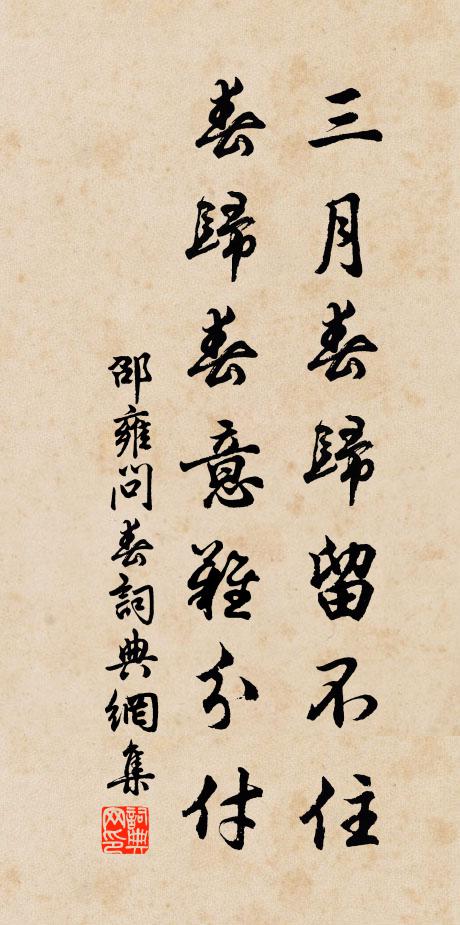 三月春歸留不住
春歸春意難分付
邵雍問春詞典網集
詞典网印